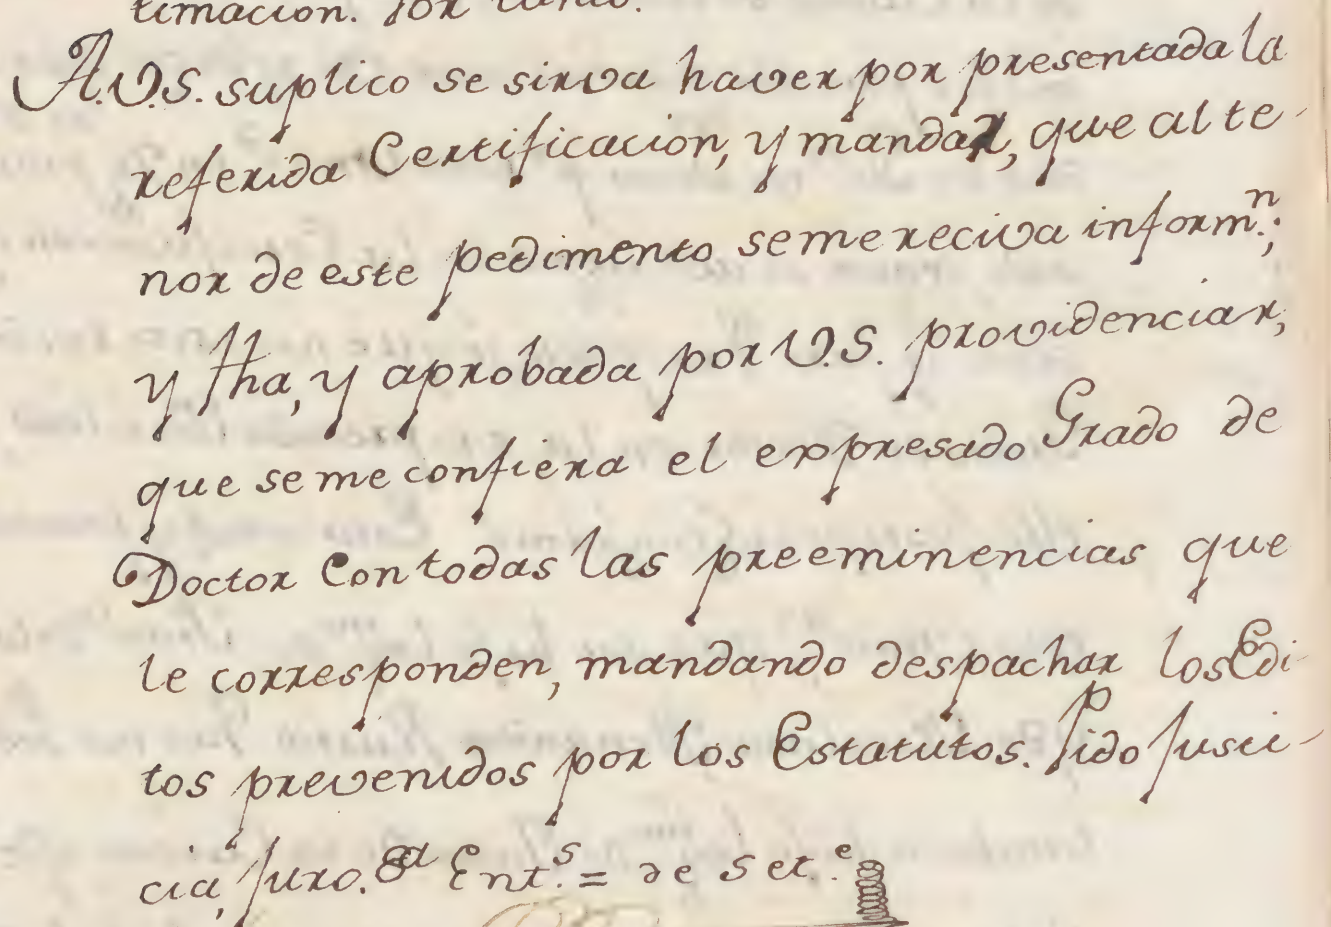 timacion. Por tanto.
A.V.S. suplico se sirva haver por presentada la
referida Certificacion, y mandar, que al te-
nor de este pedimento se me reciva informⁿ.;
y fha, y aprobada por V.S. providenciar,
que se me confiera el expresado Grado de
Doctor con todas las preeminencias que
le corresponden, mandando despachar los Edi-
tos prevenidos por los Estatutos. Pido Justi-
cia, Juro. &ᵃ Entˢ. = de Set.ᵉ